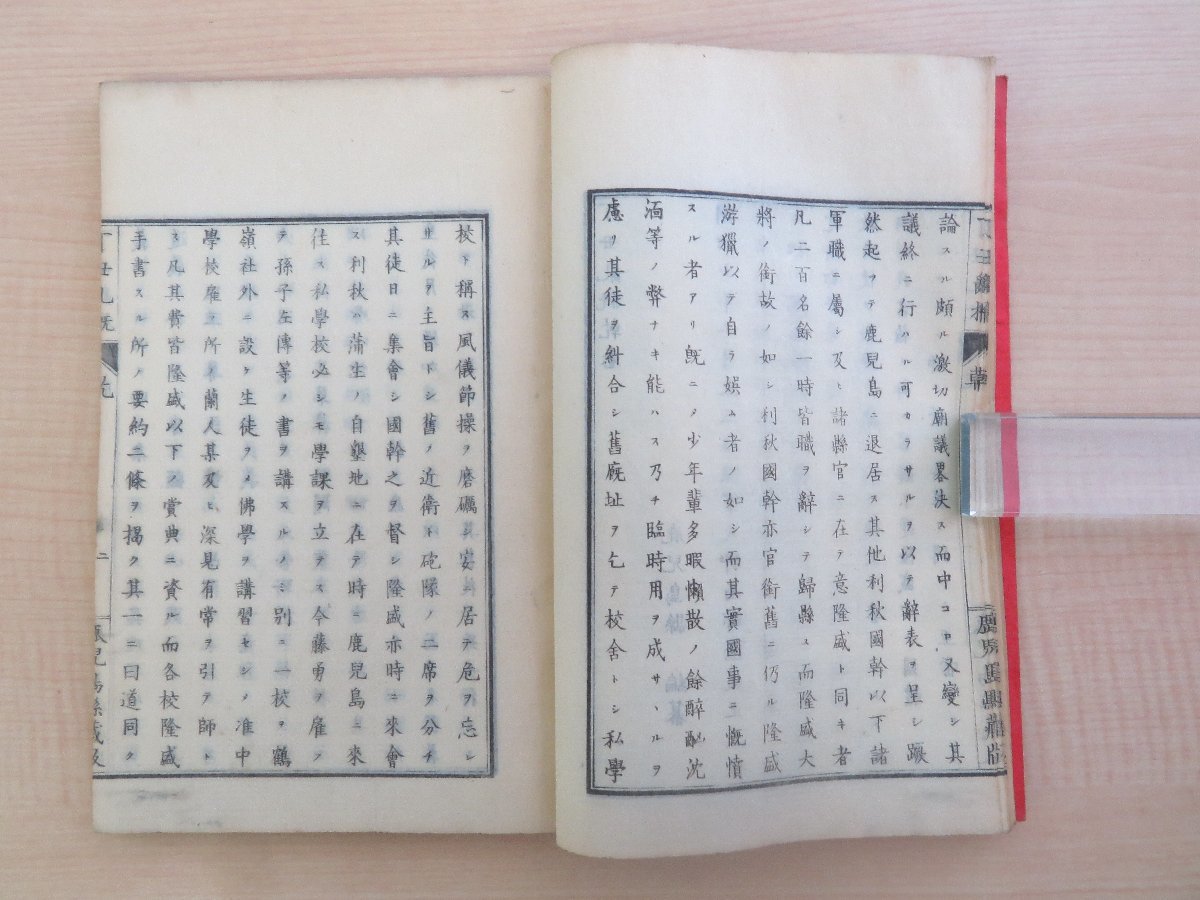 論スル頗ル激切廟議畧決ス而中コロ又變シ其
議終ニ行ハル可カラサルヲ以テ辭表ヲ呈シ蹶
然起ヲテ鹿兒島ニ退居ス其他利秋國幹以下諸
軍職ニ屬シ及ヒ諸縣官ニ在テ意隆盛ト同キ者
凡二百名餘一時皆職ヲ辭シテ歸縣ス而隆盛大
將ノ銜故ノ如シ利秋國幹亦官銜舊ニ仍ル隆盛
游獵以テ自ラ娯ム者ノ如シ而其實國事ニ慨憤
スル者アリ既ニメ少年輩多暇懶散ノ餘醉酗沈
湎等ノ弊ナキ能ハス乃チ臨時用ヲ成サヽルヲ
慮リ其徒ヲ糾合シ舊廐址ヲ乞テ校舎トシ私學
鹿兒島縣藏版
校ト稱ス風儀節操ヲ磨礪シ安ニ居テ危ヲ忘レ
サルヲ主旨トシ舊ノ近衛ト砲隊ノ二席ヲ分チ
其徒日ニ集會シ國幹之ヲ督シ隆盛亦時ニ來會
ス利秋ハ蒲生ノ自墾地ニ在テ時ニ鹿兒島ニ來
往ス私學校必シモ學課ヲ立テス今藤勇ヲ雇フ
テ孫子左傳等ノ書ヲ講スルノミ別ニ一校ヲ鶴
嶺社外ニ設ケ生徒ヲメ佛學ヲ講習セシメ准中
學校雇フ所ノ蘭人某及ヒ深見有常ヲ引テ師ト
ス凡其費皆隆盛以下ノ賞典ニ資ル而各校隆盛
手書スル所ノ要約二條ヲ揭ク其一ニ曰道同ク
丁丑亂概
二
鹿兒島縣藏版